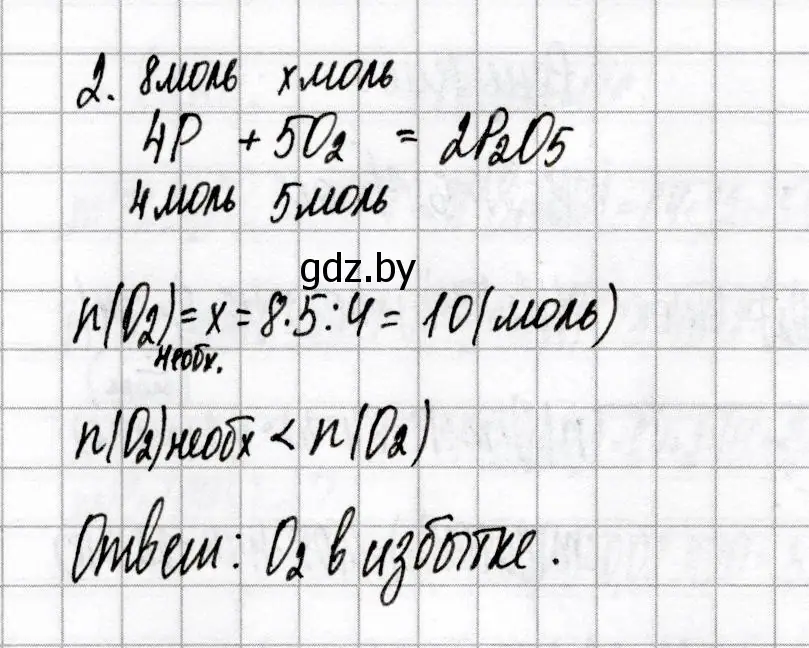 2. 8моль хмоль
4P + 5O₂ = 2P₂O₅
4моль 5моль
gdz.by
n(O₂)необх. = x = 8·5:4 = 10(моль)
n(O₂)необх < n(O₂)
Ответ: O₂ в избытке.